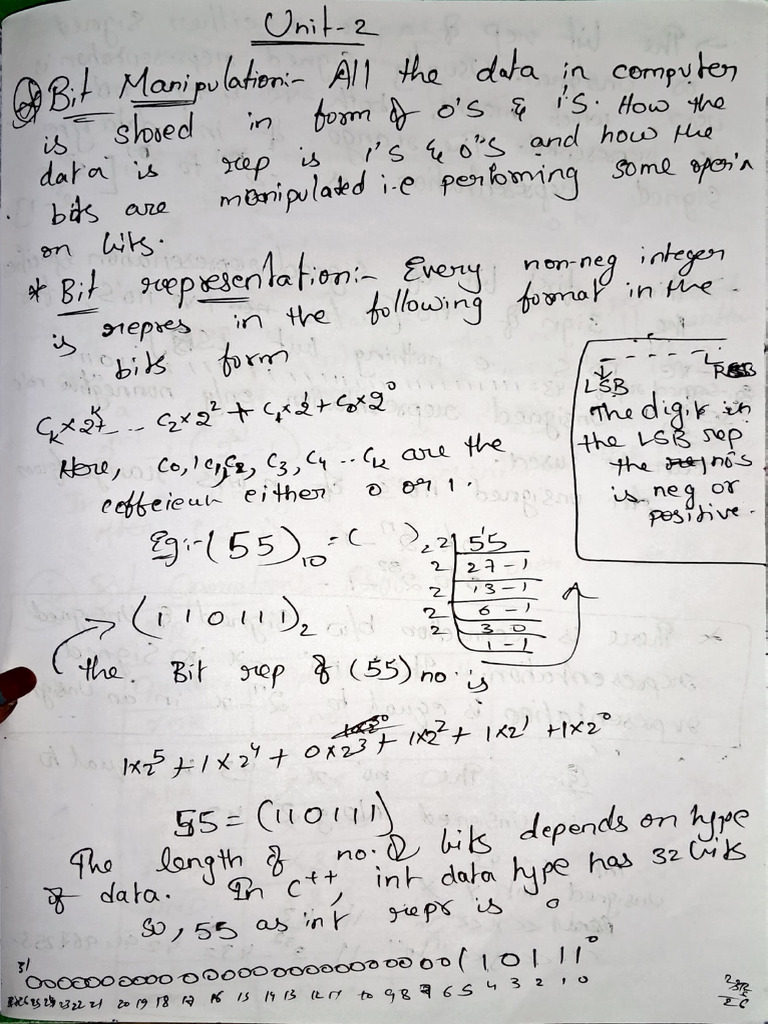 Unit-2
Bit Manipulation:- All the data in computer
is stored in form of 0'S & 1'S. How the
data is rep is 1'S & 0"S and how the
bits are manipulated i.e performing some oper'n
on bits.
* Bit representation:- Every non-neg integer
is repres. in the following format in the
bits form
Ck×2^k+ ... C2×2² + C1×2¹ + C0×2⁰
Here, C0, C1, C2, C3, C4 .. Ck are the
coefficient either 0 or 1.
LSB
RSB
The digit in
the LSB rep
the no's
is neg or
positive.
Eg:- (55)₁₀ = ( )₂
2 | 55
2 | 27 - 1
2 | 13 - 1
2 | 6 - 1
2 | 3 0
1 - 1
(110111)₂
the. Bit rep of (55) no. is
1×2⁵ + 1×2⁴ + 0×2³ + 1×2² + 1×2¹ + 1×2⁰
55 = (110111)
The length of no. of bits depends on type
of data. In C++, int data type has 32 bits
So, 55 as int repr is
31 0